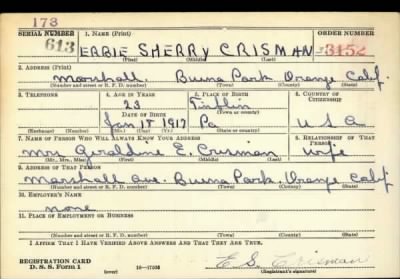 173
SERIAL NUMBER 1. NAME (Print) ORDER NUMBER
613 ERBIE SHERRY CRISMAN 3152
(First) (Middle) (Last)
2. ADDRESS (Print)
Marshall. Buena Park Orange Calif.
(Number and street or R. F. D. number) (Town) (County) (State)
3. TELEPHONE 4. AGE IN YEARS 5. PLACE OF BIRTH 6. COUNTRY OF CITIZENSHIP
23
DATE OF BIRTH (Town or county)
Jan 18 1917 Pa U S A
(Exchange) (Number) (Mo.) (Day) (Yr.) (State or country)
7. NAME OF PERSON WHO WILL ALWAYS KNOW YOUR ADDRESS 8. RELATIONSHIP OF THAT PERSON
Mrs Geraldine E. Crisman Wife
(Mr., Mrs., Miss) (First) (Middle) (Last)
9. ADDRESS OF THAT PERSON
Marshall Ave. Buena Park. Orange Calif
(Number and street or R. F. D. number) (Town) (County) (State)
10. EMPLOYER'S NAME
none
11. PLACE OF EMPLOYMENT OR BUSINESS
(Number and street or R. F. D. number) (Town) (County) (State)
I AFFIRM THAT I HAVE VERIFIED ABOVE ANSWERS AND THAT THEY ARE TRUE.
REGISTRATION CARD
D. S. S. Form 1 (over) E. S. Crisman
(Registrant's signature)